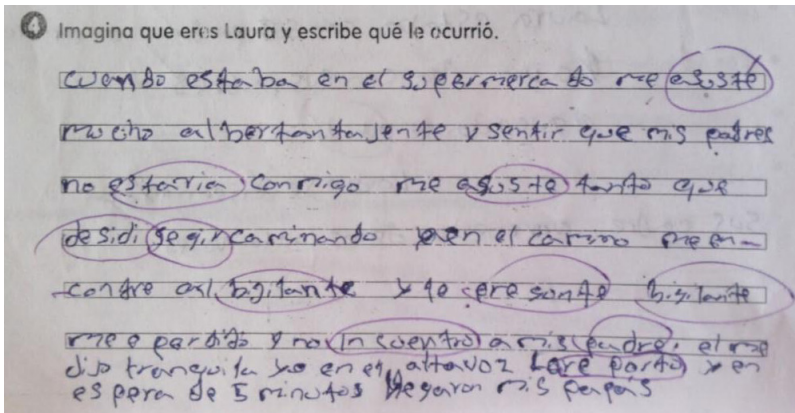 4 Imagina que eres Laura y escribe qué le ocurrió.
cuando estaba en el supermercado me asusté
mucho al ber tanta jente y sentir que mis padres
no estaria conmigo me asuste tanto que
desidi segir caminando y en el camino me en
contre al bijilante y le
me e perdido y no incuentro a mis padre. el me
dijo tranquila yo en el altavoz y en
espera de 5 minutos llegaron mis papás